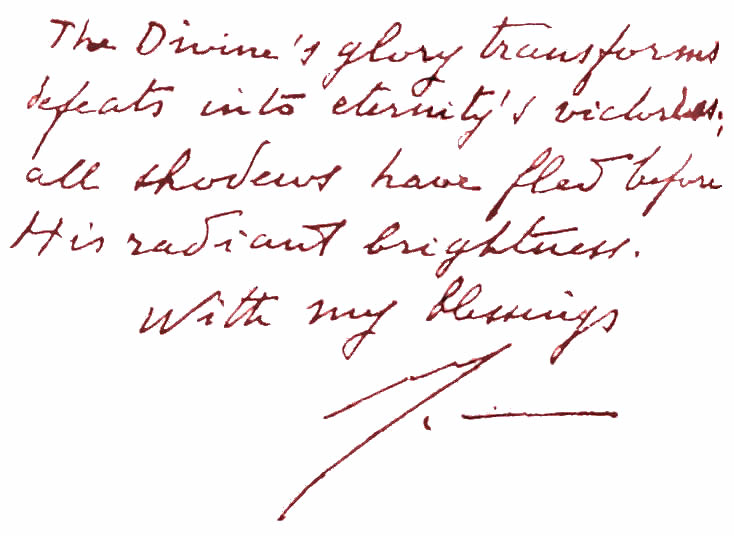 The Divine's glory transforms
defeats into eternity's victories;
all shadows have fled before
His radiant brightness.
With my blessings